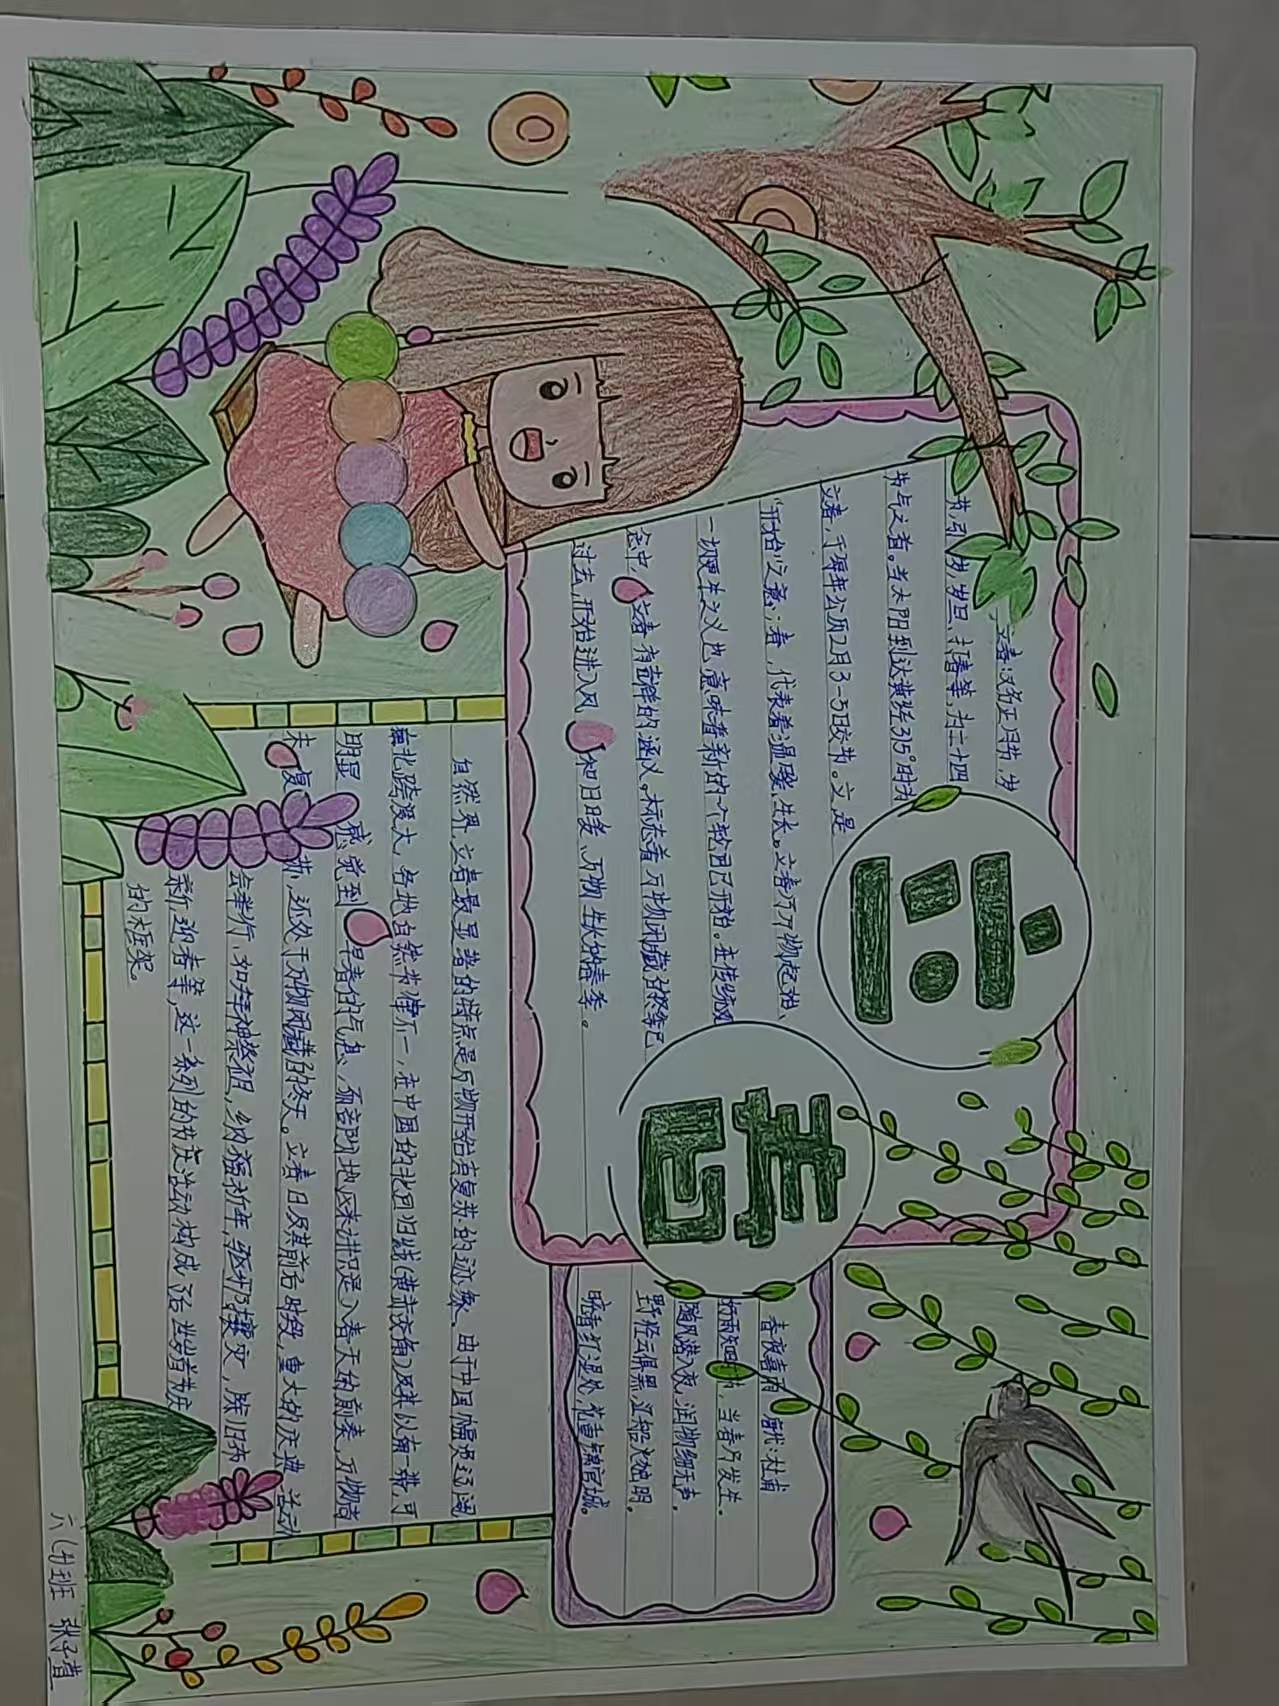 立春
立春：又名正月节、岁
节、
岁旦、打春等，为二十四
节气之首。当太阳到达黄经315°时为
立春，于每年公历2月3-5日交节。立是
“开始”之意；春，代表着温暖、生长。立春乃万物起始、
一切更生之义也，意味着新的一个轮回已开始。在传统观
念中
立春有吉祥的涵义。标志着万物闭藏的冬季已
过去，开始进入风
和日暖、万物生长的春季。
自然界立春最显著的特点是万物开始有复苏的迹象。由于中国幅员辽阔
南北跨度大，各地自然节律不一，在中国的北回归线(黄赤交角)及其以南一带，可
明显
感觉到
早春的气息
地区来讲只是入春天的前奏，万物尚
未
复
苏，还处于万物闭藏的冬天。立春日及其前后时段，重大的庆典活动
会举行，如拜神祭祖，纳福祈年，驱邪攘灾，除旧布
新迎春等，这一系列的节庆活动构成了
岁首节庆
的框架。
春夜喜雨 唐代：杜甫
好雨知时
，当春乃发生。
随风潜入夜，润物细无声。
野径云俱黑，江船火独明。
晓看红湿处，花重锦官城。
六(4)班 张子萱